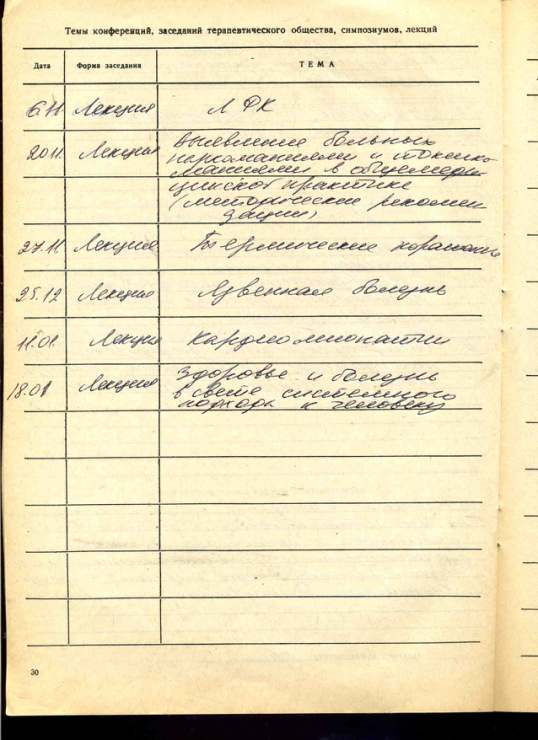 Темы конференций, заседаний терапевтического общества, симпозиумов, лекций
Дата Форма заседания ТЕМА
6.11 Лекция ЛФК
20.11. Лекция Выявление больных
наркоманиями и токсико
маниями в общемеди
цинской практике
(методические рекомен
дации)
27.11. Лекция термические поражения
25.12 Лекция Язвенная болезнь
11.01. Лекция Кардиомиопатии
18.01 Лекция Здоровье и болезнь
в свете системного
подхода к человеку
30